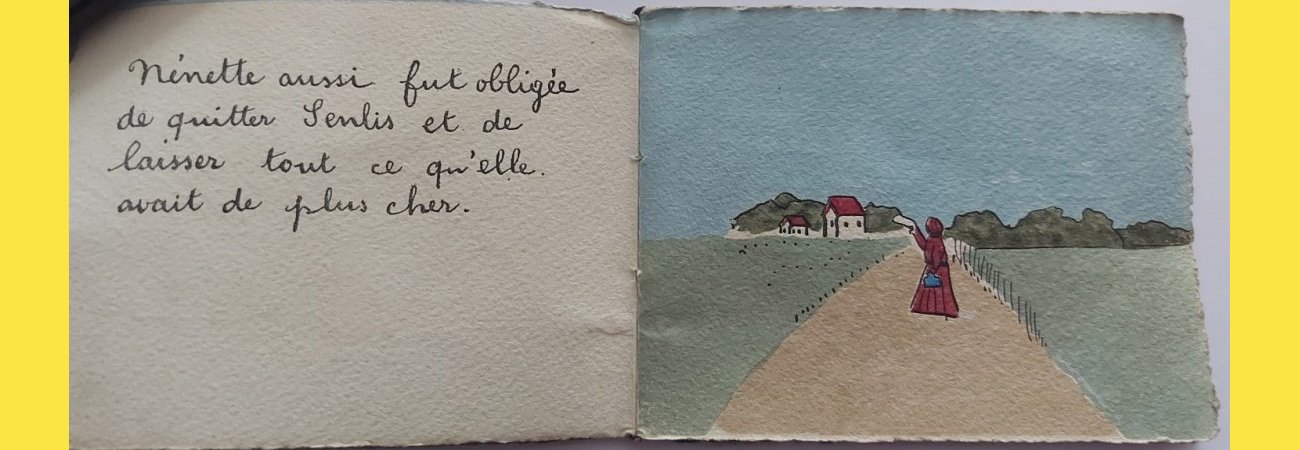 Nénette aussi fut obligée
de quitter Senlis et de
laisser tout ce qu'elle.
avait de plus cher.